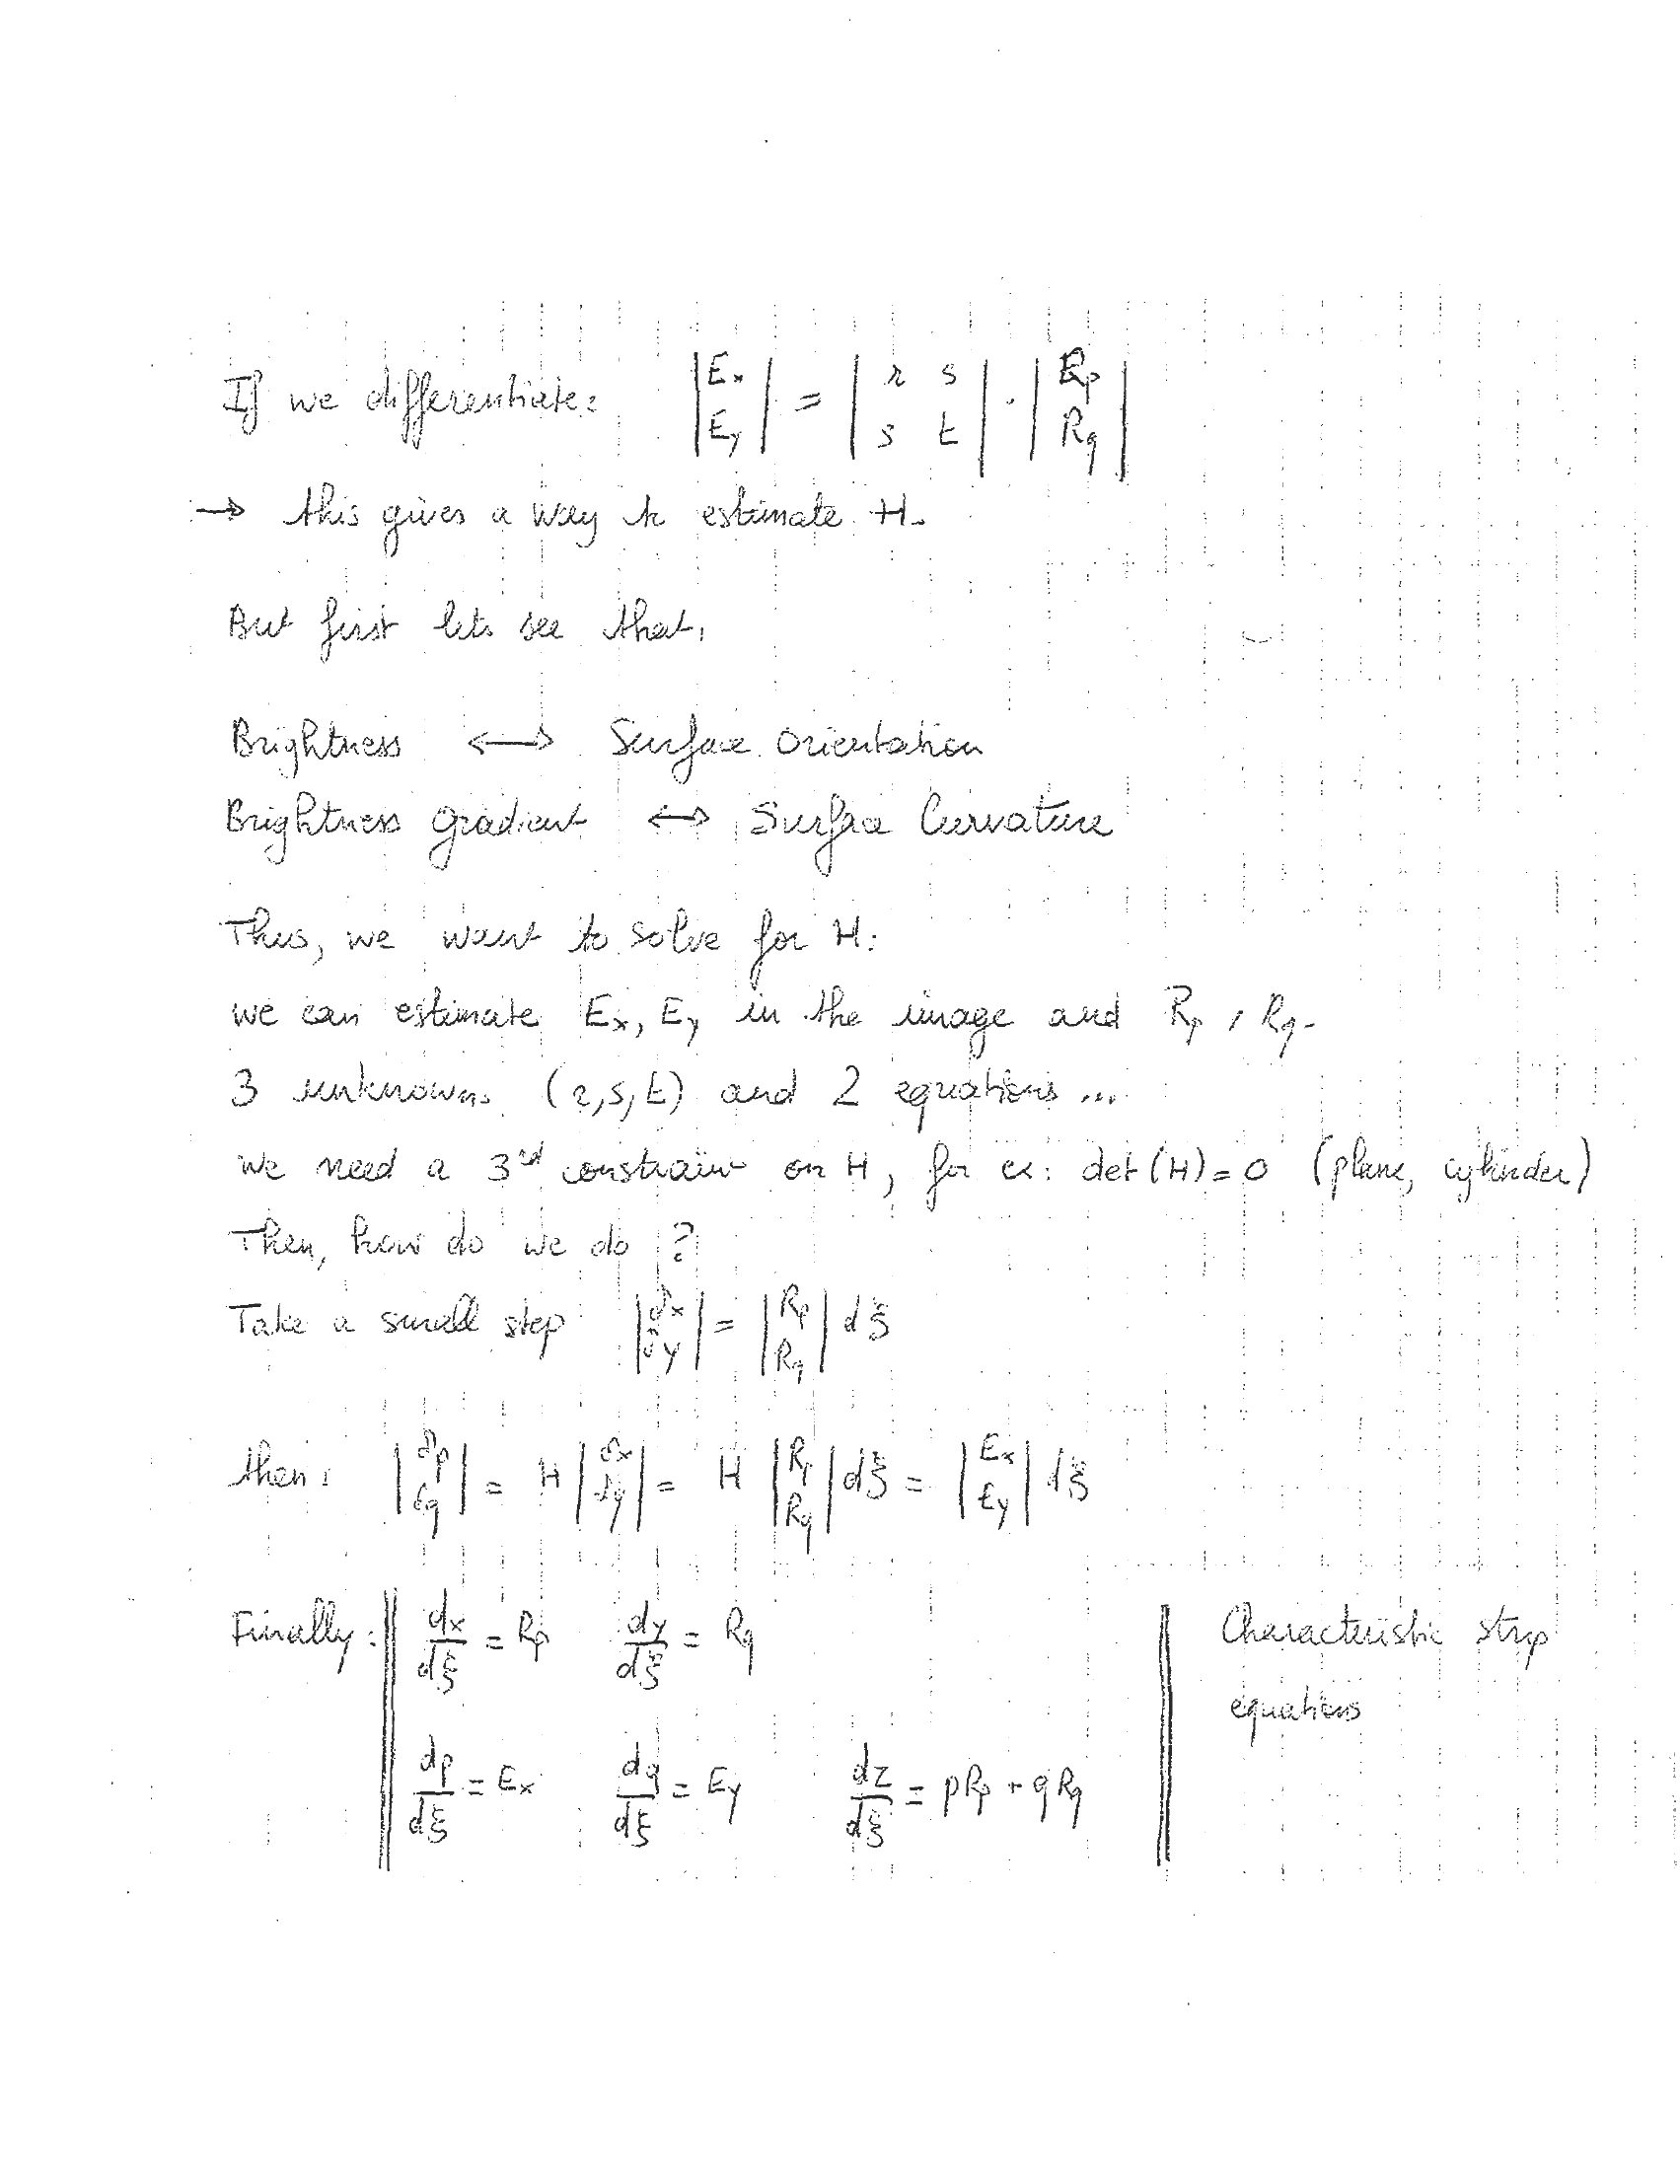 If we differentiate: |Ex Ey| = |r s s t| . |Rp Rq|
→ this gives a way to estimate H.
But first lets see that,
Brightness ↔ Surface orientation
Brightness gradient ↔ Surface Curvature
Thus, we want to solve for H:
we can estimate Ex, Ey in the image and Rp, Rq.
3 unknowns (r,s,t) and 2 equations ...
we need a 3rd constraint on H, for ex: det(H)=0 (plane, cylinder)
Then, how do we do ?
Take a small step |δx δy| = |Rp Rq| dξ
then: |δp δq| = H |δx δy| = H |Rp Rq| dξ = |Ex Ey| dξ
Finally: dx/dξ = Rp dy/dξ = Rq Characteristic strip
equations
dp/dξ = Ex dq/dξ = Ey dz/dξ = pRp + qRq